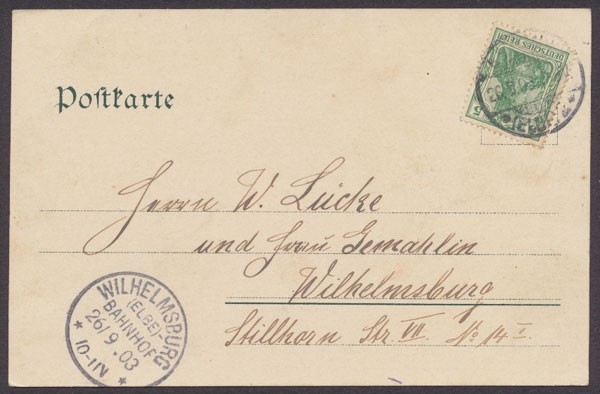 Postkarte
DEUTSCHES REICH
5
(ELBE)
Herrn W. Lücke
und Frau Gemahlin
Wilhelmsburg
Stillhorn Str. VII No 14 I.
WILHELMSBURG
(ELBE)-
BAHNHOF
26/9.03
* 10-11N *